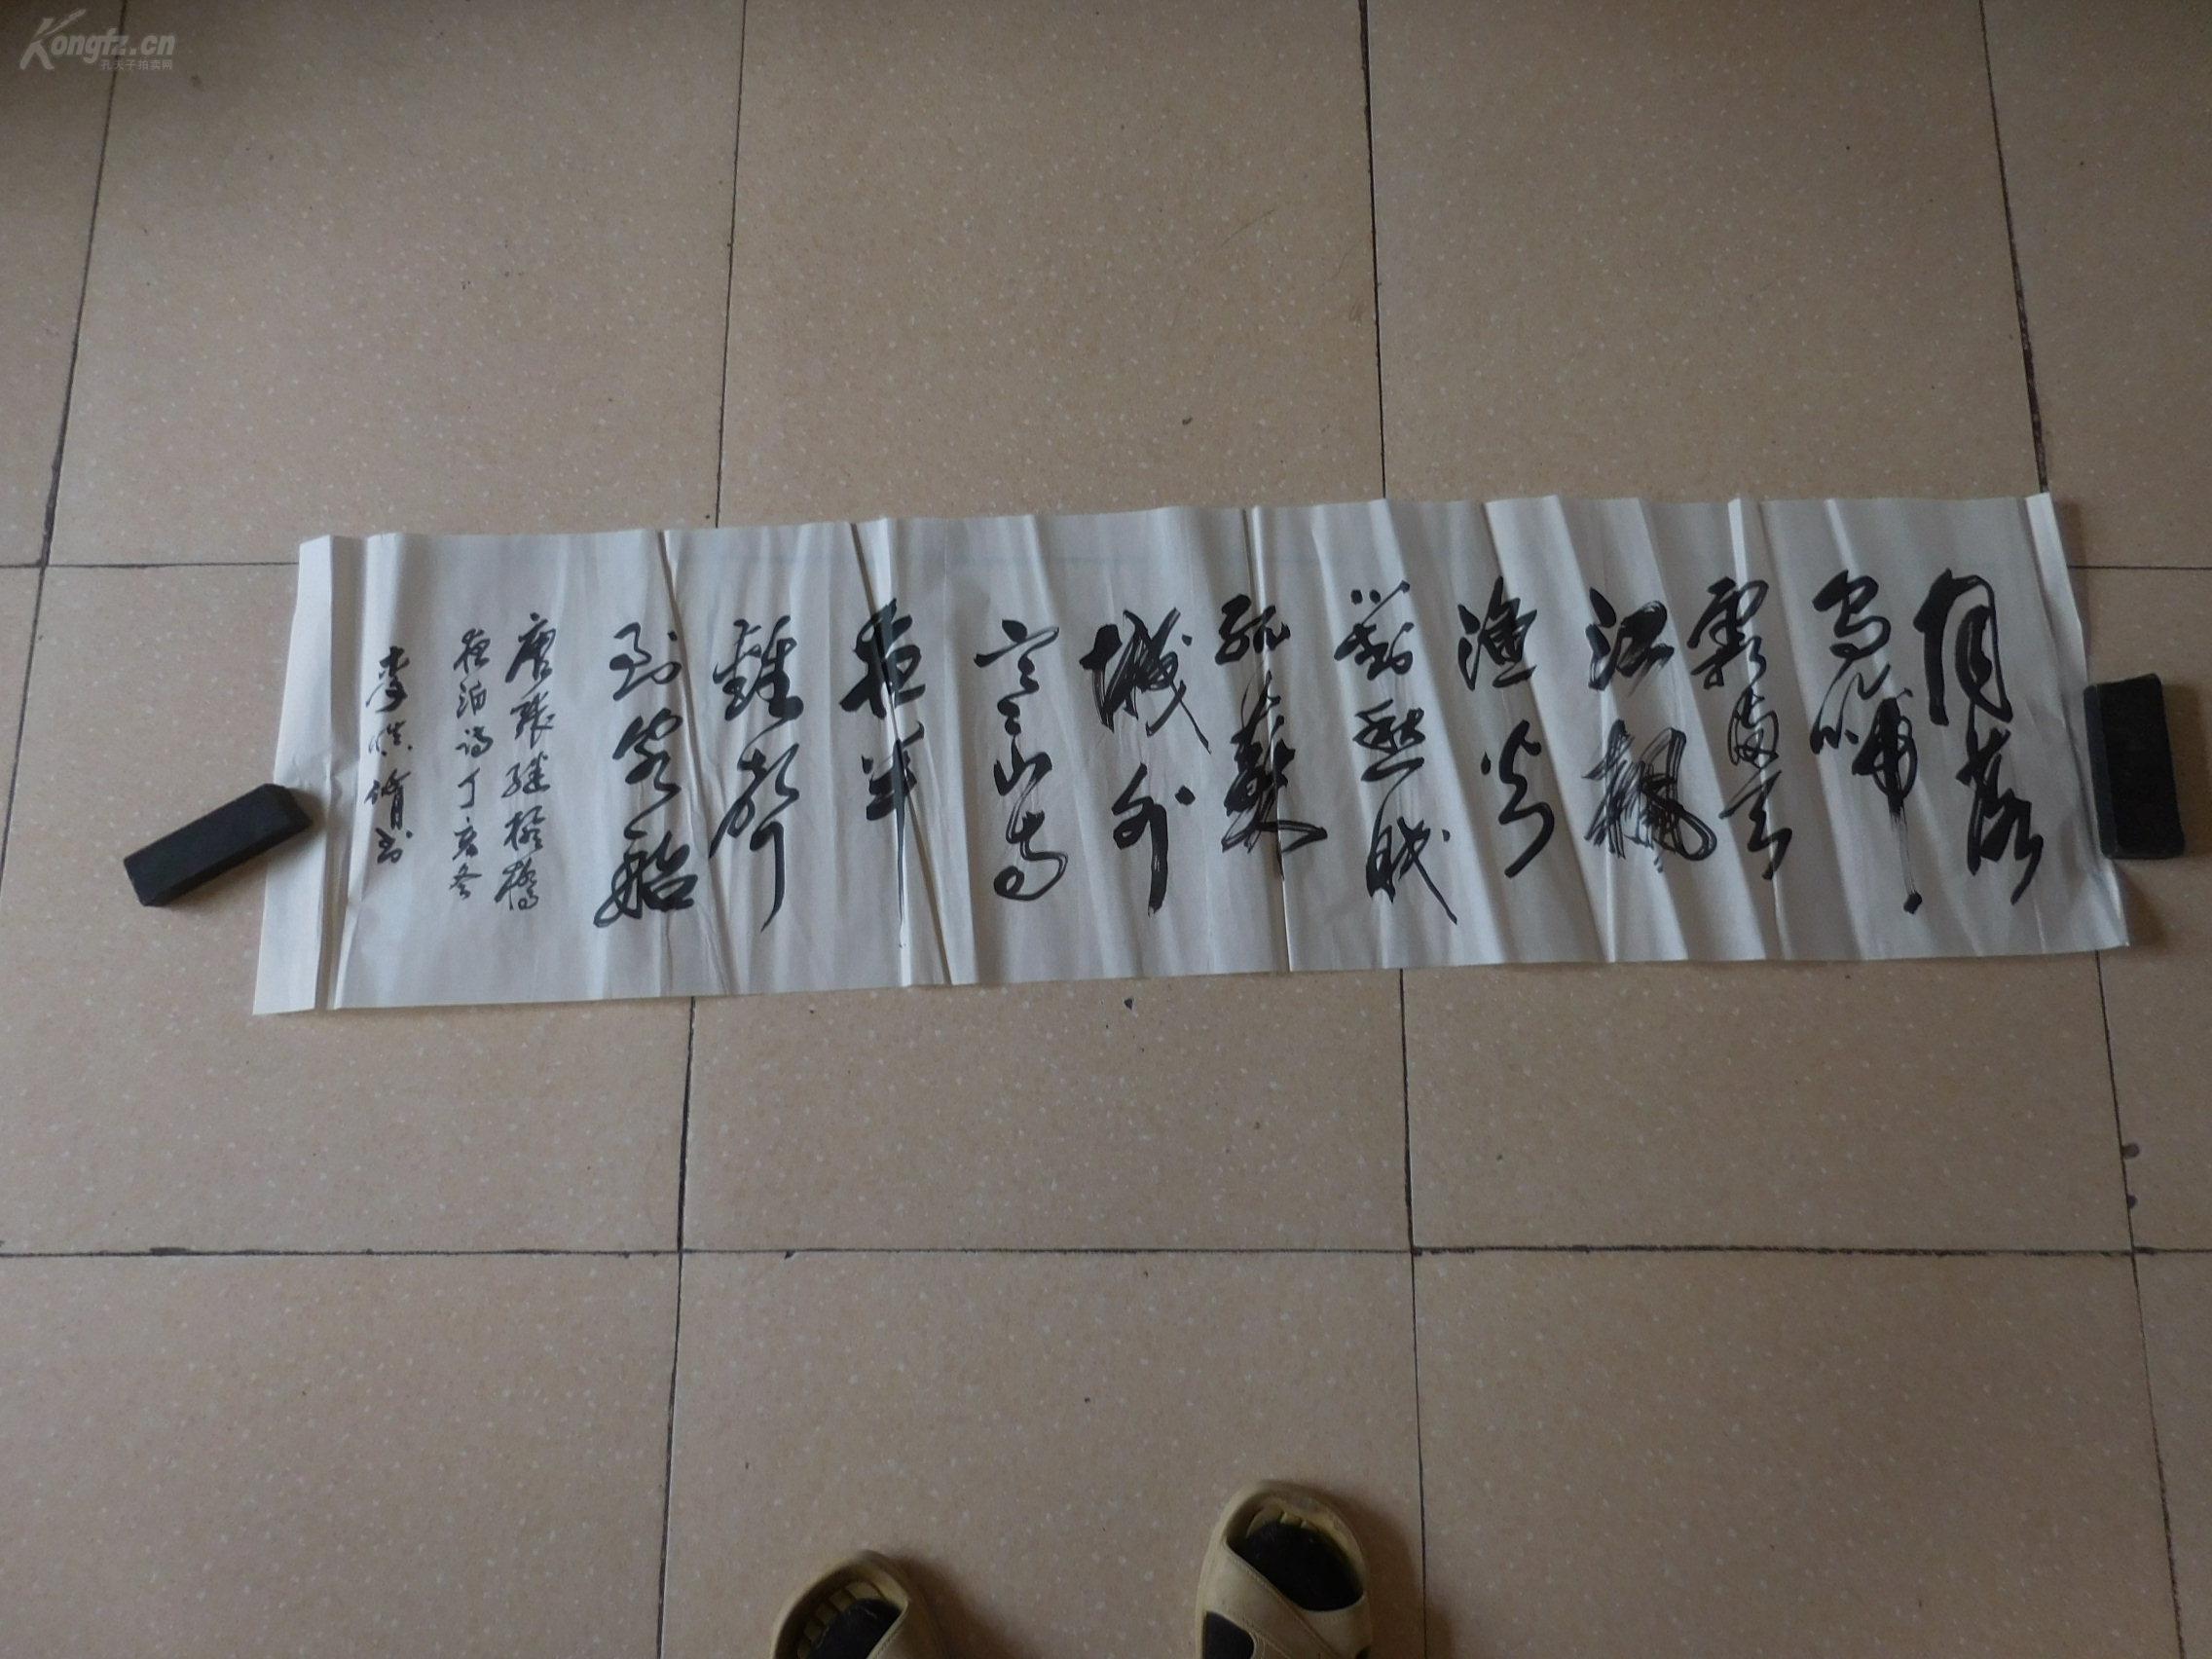 Kongfz.cn
孔夫子拍卖网
月落
烏啼
霜满天
江楓
渔火
對愁眠
姑蘇
城外
寒山寺
夜半
鐘聲
到客船
唐張继楓橋
夜泊诗丁亥冬
李书